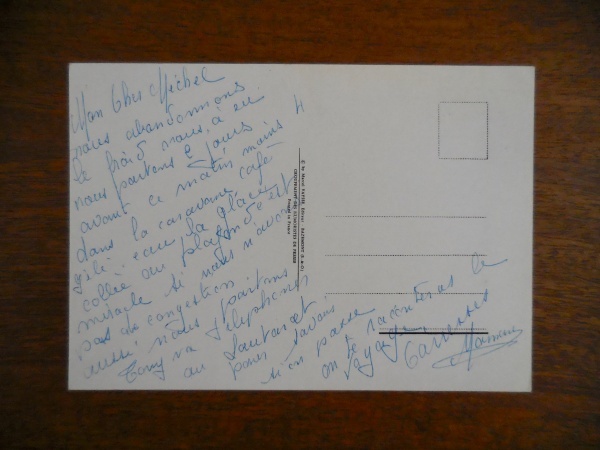 Mon Cher Michel
nous abandonnons
le froid nous a eu
nous partons 2 jours
avant ce matin moins 4
dans la caravane café
gelé eau la glace
collée au plafond c'est
miracle si nous n'avons
pas de congestion
aussi nous partons
Tony va téléphoner
au Lautaret
pour savoir
si on passe
on te racontera le
voyage
Caresses
Maman
© by
Éditeur
Printed in France